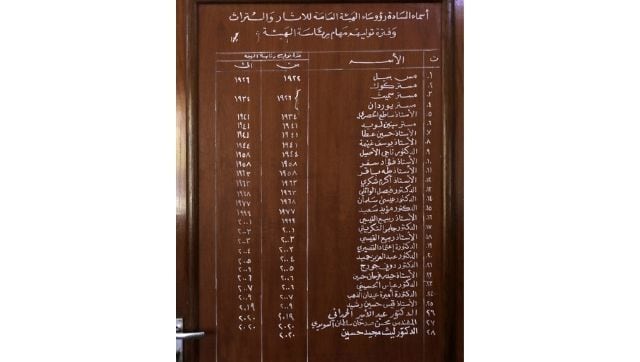 أسماء السادة رؤوساء الهيئة العامة للآثار والتراث
وفترة توليهم مهام رئاسة الهيئة
ت الأسم من الى
١. مس بيل ١٩٢٢ ١٩٢٦
٢. مستر كوك
٣. مستر سميث ١٩٢٦ ١٩٣٤
٤. مستر يوردان
٥. الأستاذ ساطع الحصري ١٩٣٤ ١٩٤١
٦. مستر سيتن لويد ١٩٤١ ١٩٤١
٧. الأستاذ حسين عطا ١٩٤١ ١٩٤١
٨. الأستاذ يوسف غنيمة ١٩٤١ ١٩٤٤
٩. الدكتور ناجي الأصيل ١٩٤٤ ١٩٥٨
١٠. الأستاذ فؤاد سفر ١٩٥٨ ١٩٥٨
١١. الأستاذ طه باقر ١٩٥٨ ١٩٦٣
١٢. الأستاذ أكرم شكري ١٩٦٣ ١٩٦٣
١٣. الدكتور فيصل الوائلي ١٩٦٣ ١٩٦٨
١٤. الدكتور عيسى سلمان ١٩٦٨ ١٩٧٧
١٥. الدكتور مؤيد سعيد ١٩٧٧
الأستاذ ربيع القيسي ١٩٩٩ ٢٠٠١
الدكتور جابر التكريتي ٢٠٠١ ٢٠٠٣
الأستاذ ربيع القيسي ٢٠٠٣
الدكتور عبد العزيز حميد ٢٠٠٤ ٢٠٠٥
الدكتور دوني جورج ٢٠٠٥ ٢٠٠٦
٢٠٠٦ ٢٠٠٦
الدكتور عباس الحسيني ٢٠٠٦ ٢٠٠٧
الدكتورة أميرة عيدان الذهب ٢٠٠٧ ٢٠٠٩
٢٥. الأستاذ قيس حسين رشيد ٢٠٠٩ ٢٠١٩
٢٦ الدكتور عبد الأمير الحمداني ٢٠١٩ ٢٠٢٠
٢٧ المهندس ٢٠٢٠ ٢٠٢٠
٢٨ الدكتور ليث مجيد حسين ٢٠٢٠